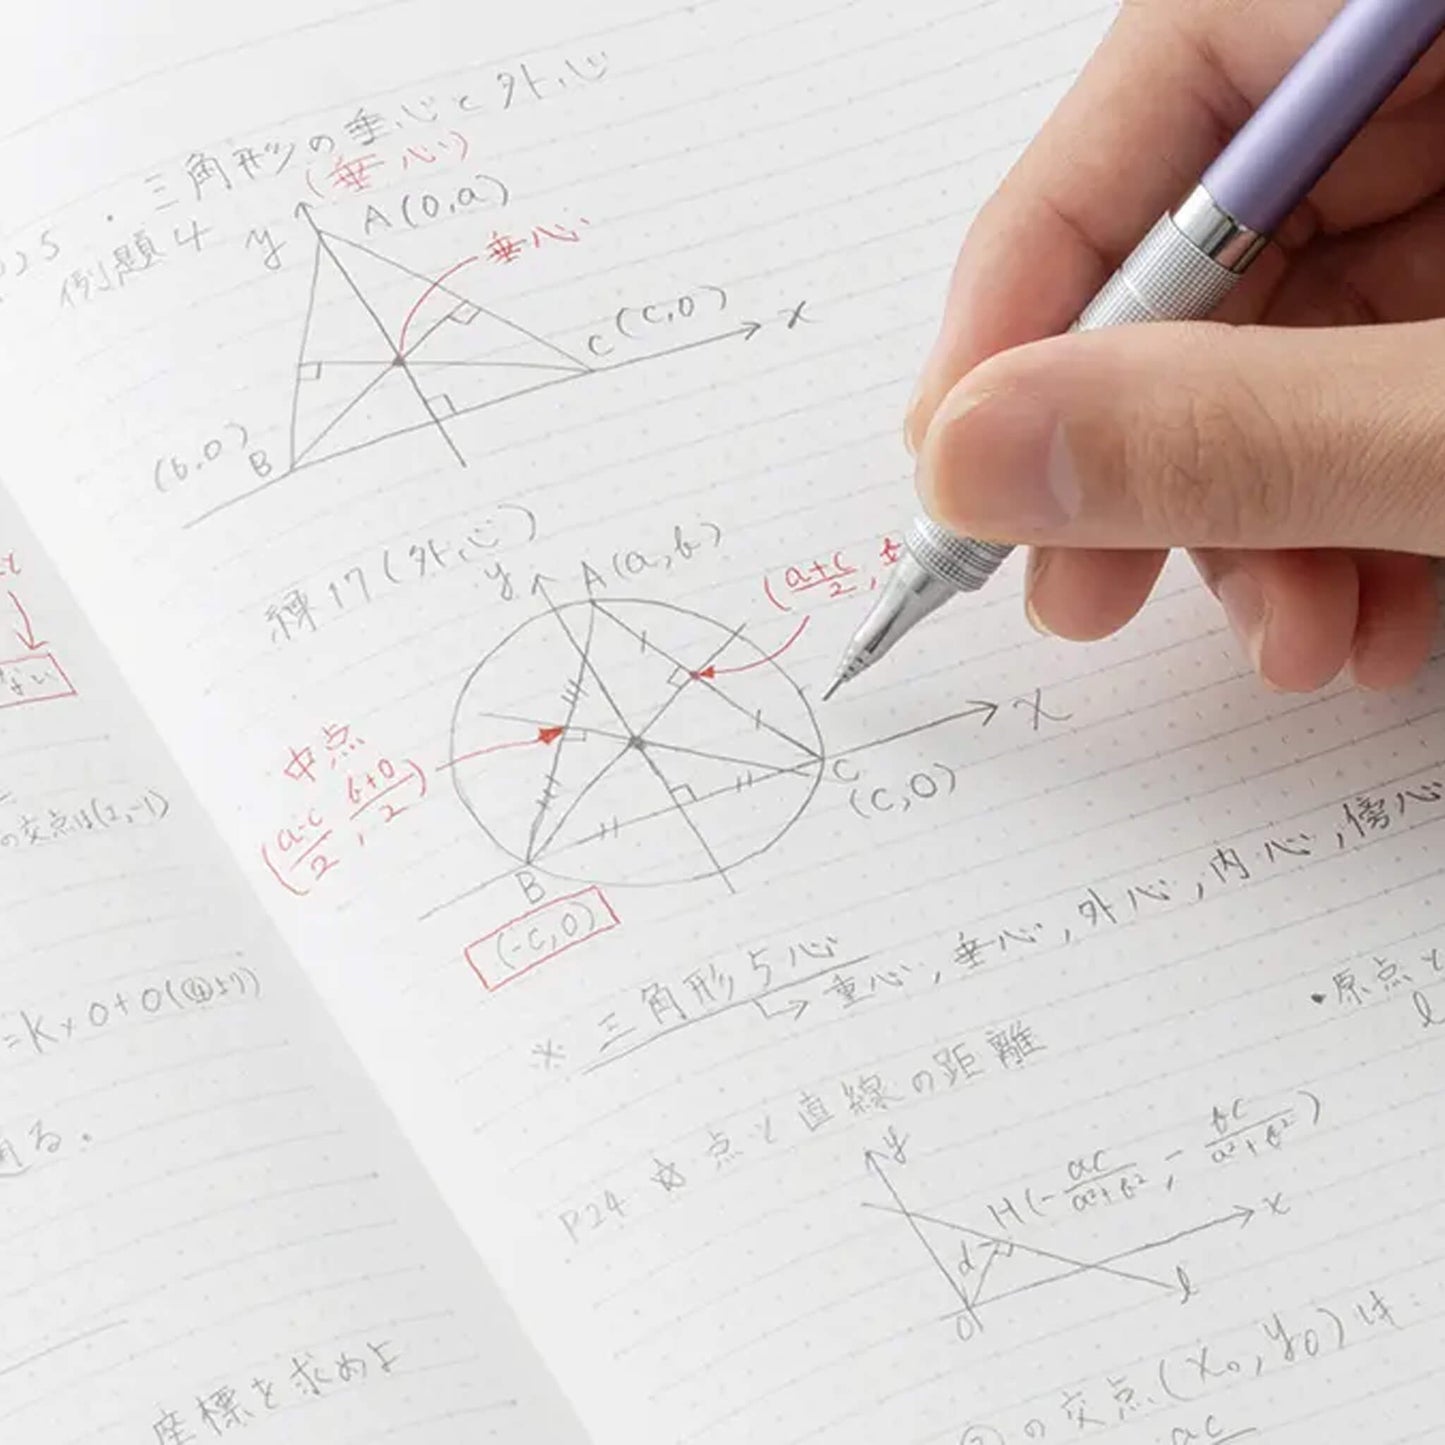 ・三角形の垂心と外心
(垂心)
例題4
y
A(0,a)
垂心
C(c,0)
x
(b,0)
B
練17(外心)
y
A(a,b)
(a+c/2,
中点
(a-c/2, b+0/2)
x
C
(c,0)
B
(-c,0)
※三角形5心
↳重心,垂心,外心,内心,傍心
・原点と
l
P24 ☆点と直線の距離
y
H(-ac/a²+b², -bc/a²+b²)
x
d
l
O
の交点(x₀,y₀)は
ac
ない
の交点は(2,-1)
=k×0+0(④より)
通る。
座標を求めよ